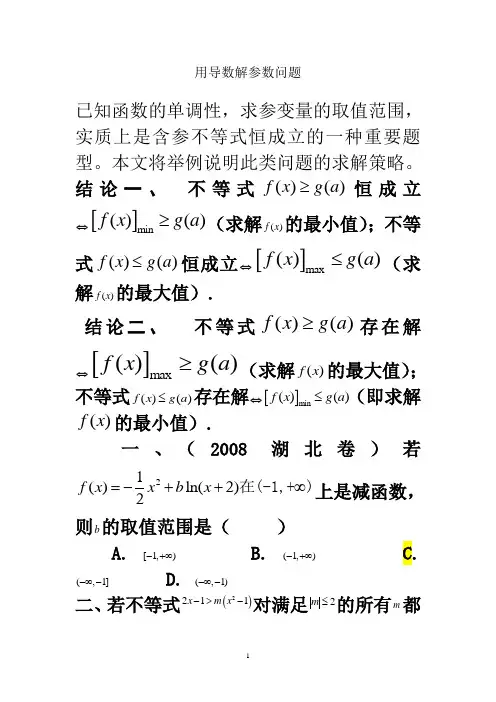 用导数解参数问题
已知函数的单调性，求参变量的取值范围，
实质上是含参不等式恒成立的一种重要题
型。本文将举例说明此类问题的求解策略。
结论一、 不等式 f(x) ≥ g(a) 恒成立
⇔[f(x)]min ≥ g(a)（求解f(x)的最小值）；不等
式 f(x) ≤ g(a) 恒成立⇔[f(x)]max ≤ g(a)（求
解f(x)的最大值）.
结论二、 不等式 f(x) ≥ g(a) 存在解
⇔[f(x)]max ≥ g(a)（求解 f(x) 的最大值）；
不等式 f(x) ≤ g(a) 存在解⇔[f(x)]min ≤ g(a)（即求解
f(x) 的最小值）.
一、（2008 湖北卷）若
f(x) = -1/2 x² + b ln(x+2)在(-1,+∞)上是减函数，
则b的取值范围是（ ）
A. [-1,+∞) B. (-1,+∞) C.
(-∞,-1] D. (-∞,-1)
二、若不等式2x-1 > m(x²-1)对满足|m| ≤ 2的所有m都
1